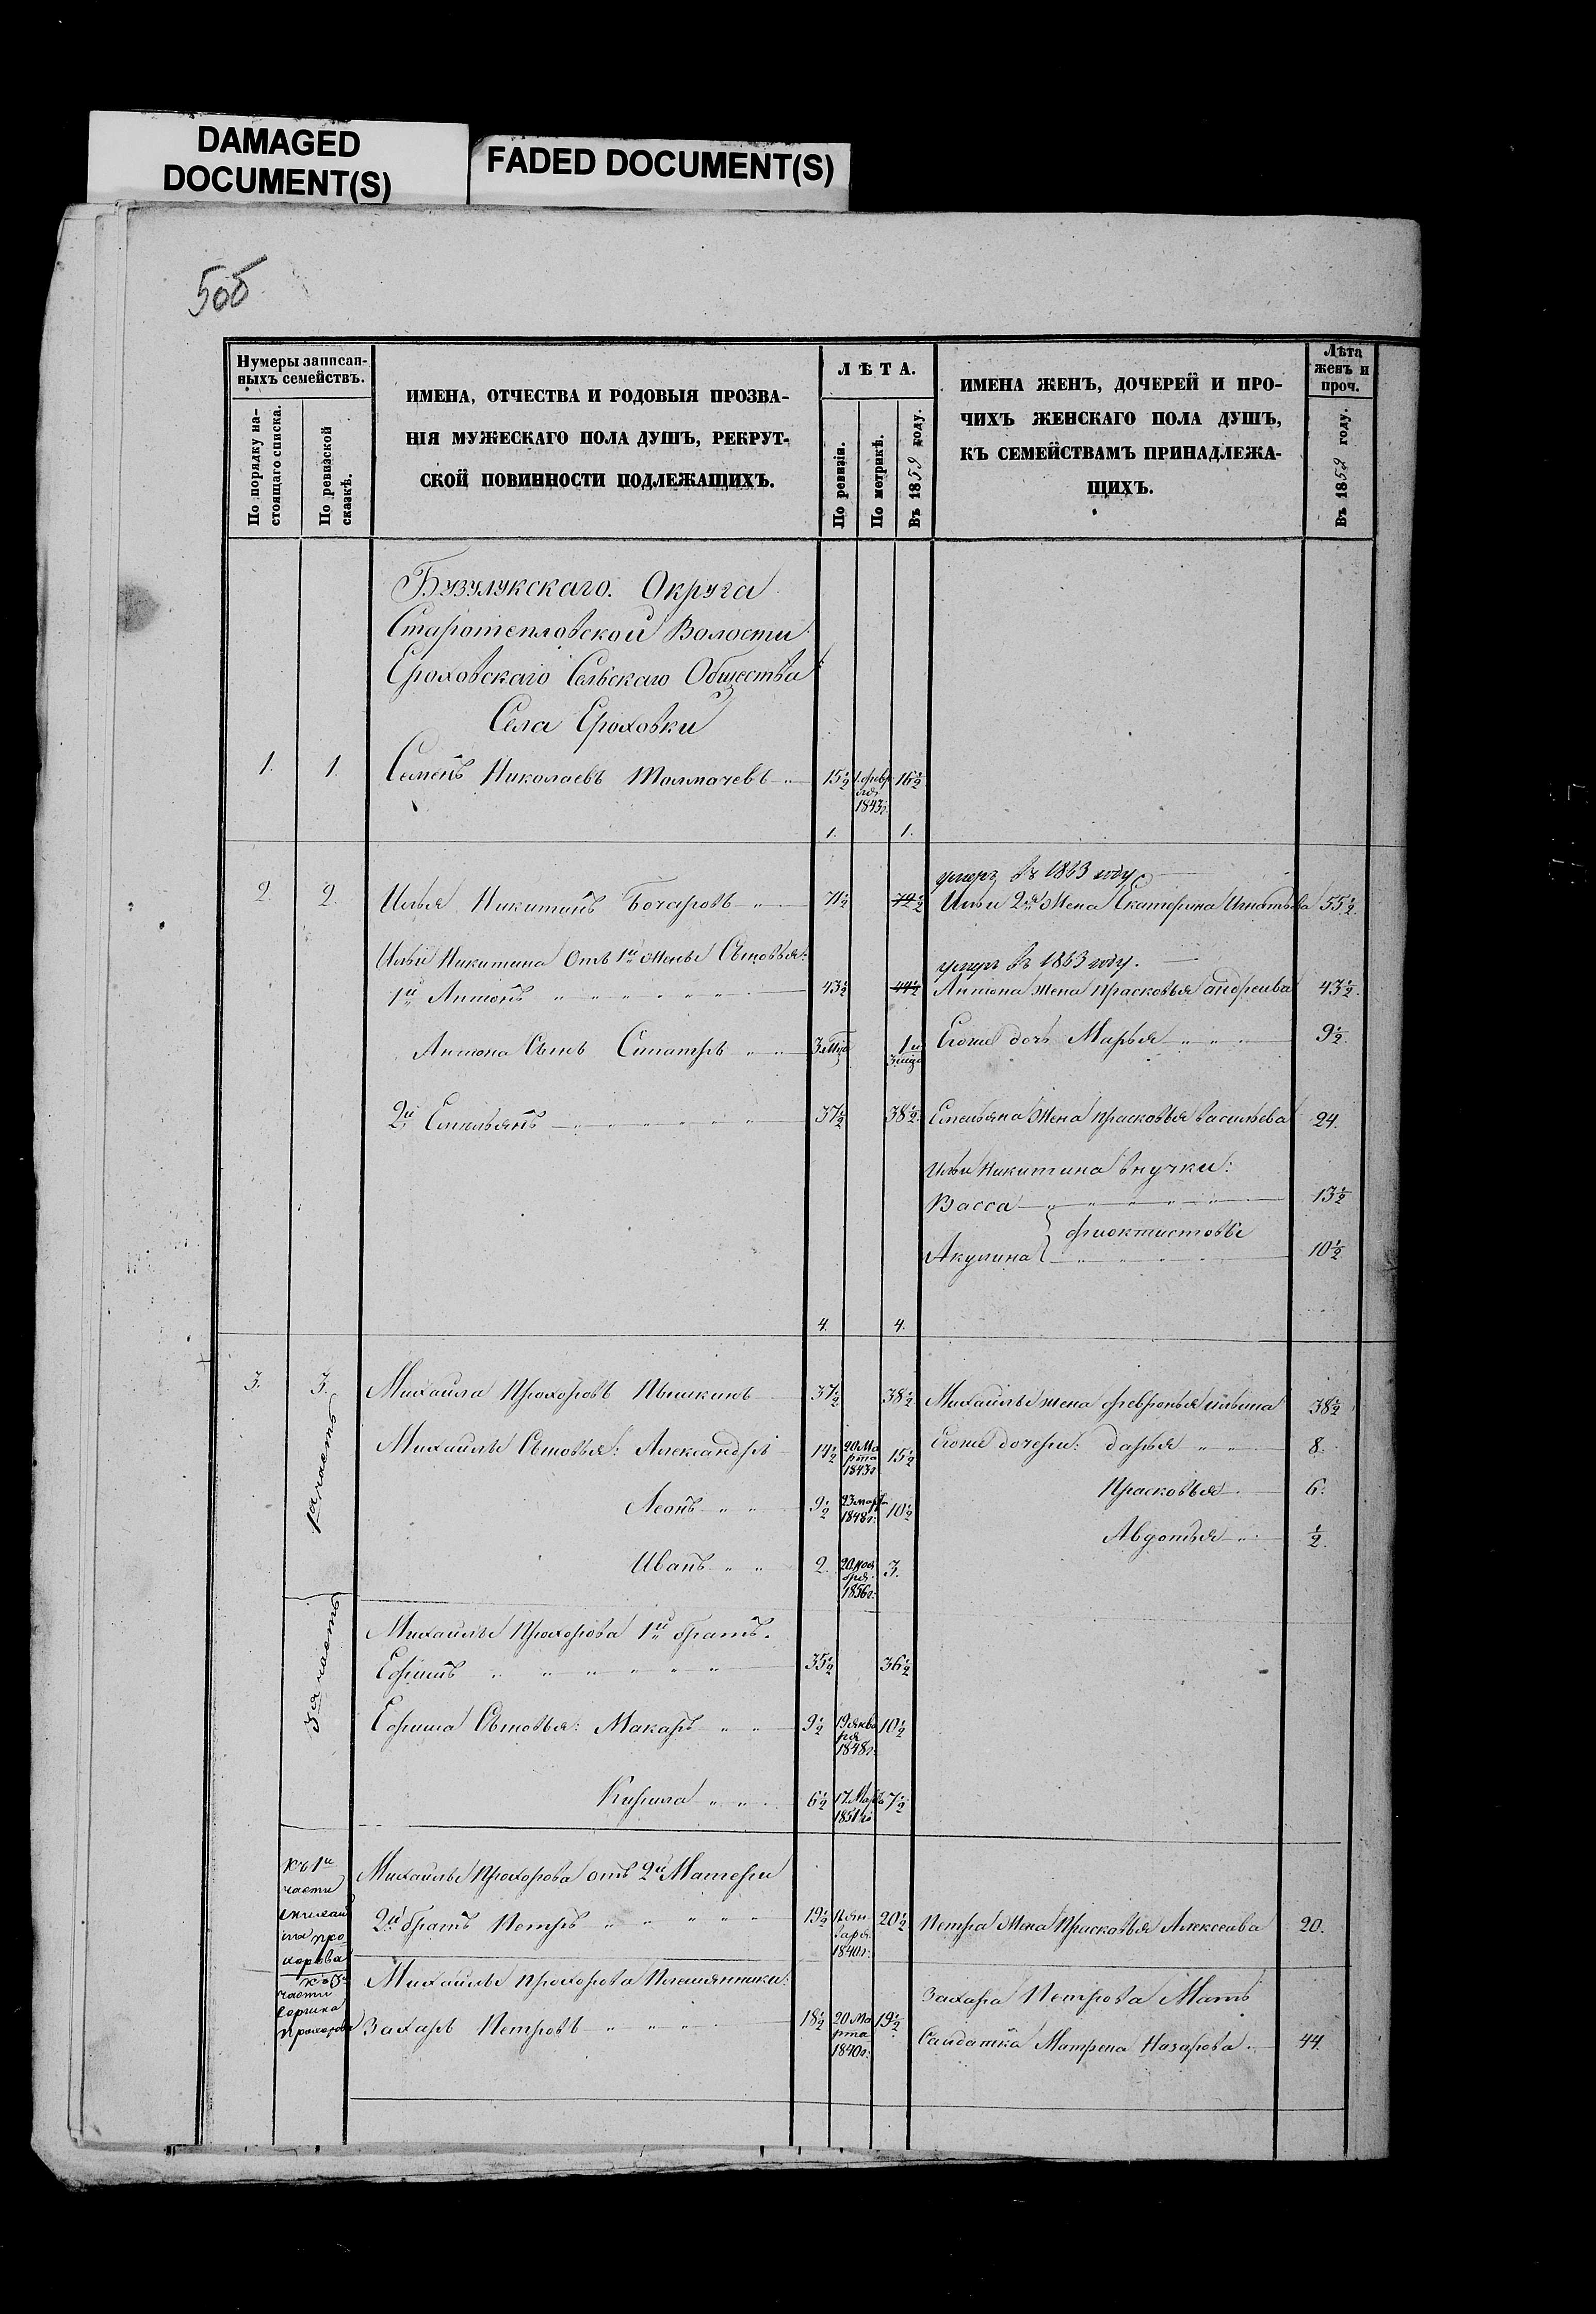 DAMAGED
DOCUMENT(S)
FADED DOCUMENT(S)
50б
Нумеры записан-
ныхъ семействъ.
По порядку на-
стоящаго списка.
По ревизской
сказкѣ.
ИМЕНА, ОТЧЕСТВА И РОДОВЫЯ ПРОЗВА-
НІЯ МУЖЕСКАГО ПОЛА ДУШЪ, РЕКРУТ-
СКОЙ ПОВИННОСТИ ПОДЛЕЖАЩИХЪ.
ЛѢТА.
По ревизіи.
По метрикѣ.
Въ 1859 году.
ИМЕНА ЖЕНЪ, ДОЧЕРЕЙ И ПРО-
ЧИХЪ ЖЕНСКАГО ПОЛА ДУШЪ,
КЪ СЕМЕЙСТВАМЪ ПРИНАДЛЕЖА-
ЩИХЪ.
Лѣта
женъ и
проч.
Въ 1859 году.
Бузулукскаго. Округа
Старотепловской Волости
Ероховскаго Сельскаго Общества
Села Ероховки
1. 1. Семенъ Николаевъ Толмачевъ 15½ 1. февраля 1843г: 16½
1. 1.
умеръ въ 1863 году
2. 2. Илья Никитинъ Бочаровъ 71½ 72½ Ильи 2я Жена Екатерина Игнатьева 55½.
Ильи Никитина Отъ 1й Жены Сыновья:
умеръ въ 1863 году.
1й Антонъ 43½ 44½ Антона жена Прасковья андреева 43½.
Антона Сынъ Сипатръ 3 мца 1 и 3 мца Егоже дочь Марья 9½.
2й Емельянъ 37½ 38½. Емельяна Жена Прасковья васильева 24.
Ильи Никитина внучки:
Васса 13½
фиоктистовы
Акулина 10½
4. 4.
3. 3. Михаила Прохоровъ Пышкинъ 37½ 38½ Михайлы жена февронья ильина 38½
1я часть
Михайлы Сыновья: Александръ 14½ 20 Марта 1843г 15½ Егоже дочери: дарья 8.
Леонъ 9½ 23 марта 1848г: 10½ Прасковья 6.
Авдотья ½.
Иванъ 2. 20 ноября 1856г: 3.
3я часть
Михайлы Прохорова 1й братъ.
Ефимъ 35½ 36½
Ефима Сыновья: Макаръ 9½ 19 января 1848г: 10½
Кирила 6½ 17. Марта 1851го 7½
къ 1й
части
михаи
ла про
хорова
Михайлы Прохорова отъ 2й Матери
2й братъ Петръ 19½ января 1840г: 20½ Петра Жена Прасковья Алексеева 20.
части
Ефима
Прохорова
Михайлы Прохорова Племянники:
Захара Петрова Мать
Захаръ Петровъ 18½ 20 Марта 1840г: 19½ Салдатка Матрена Назарова 44.